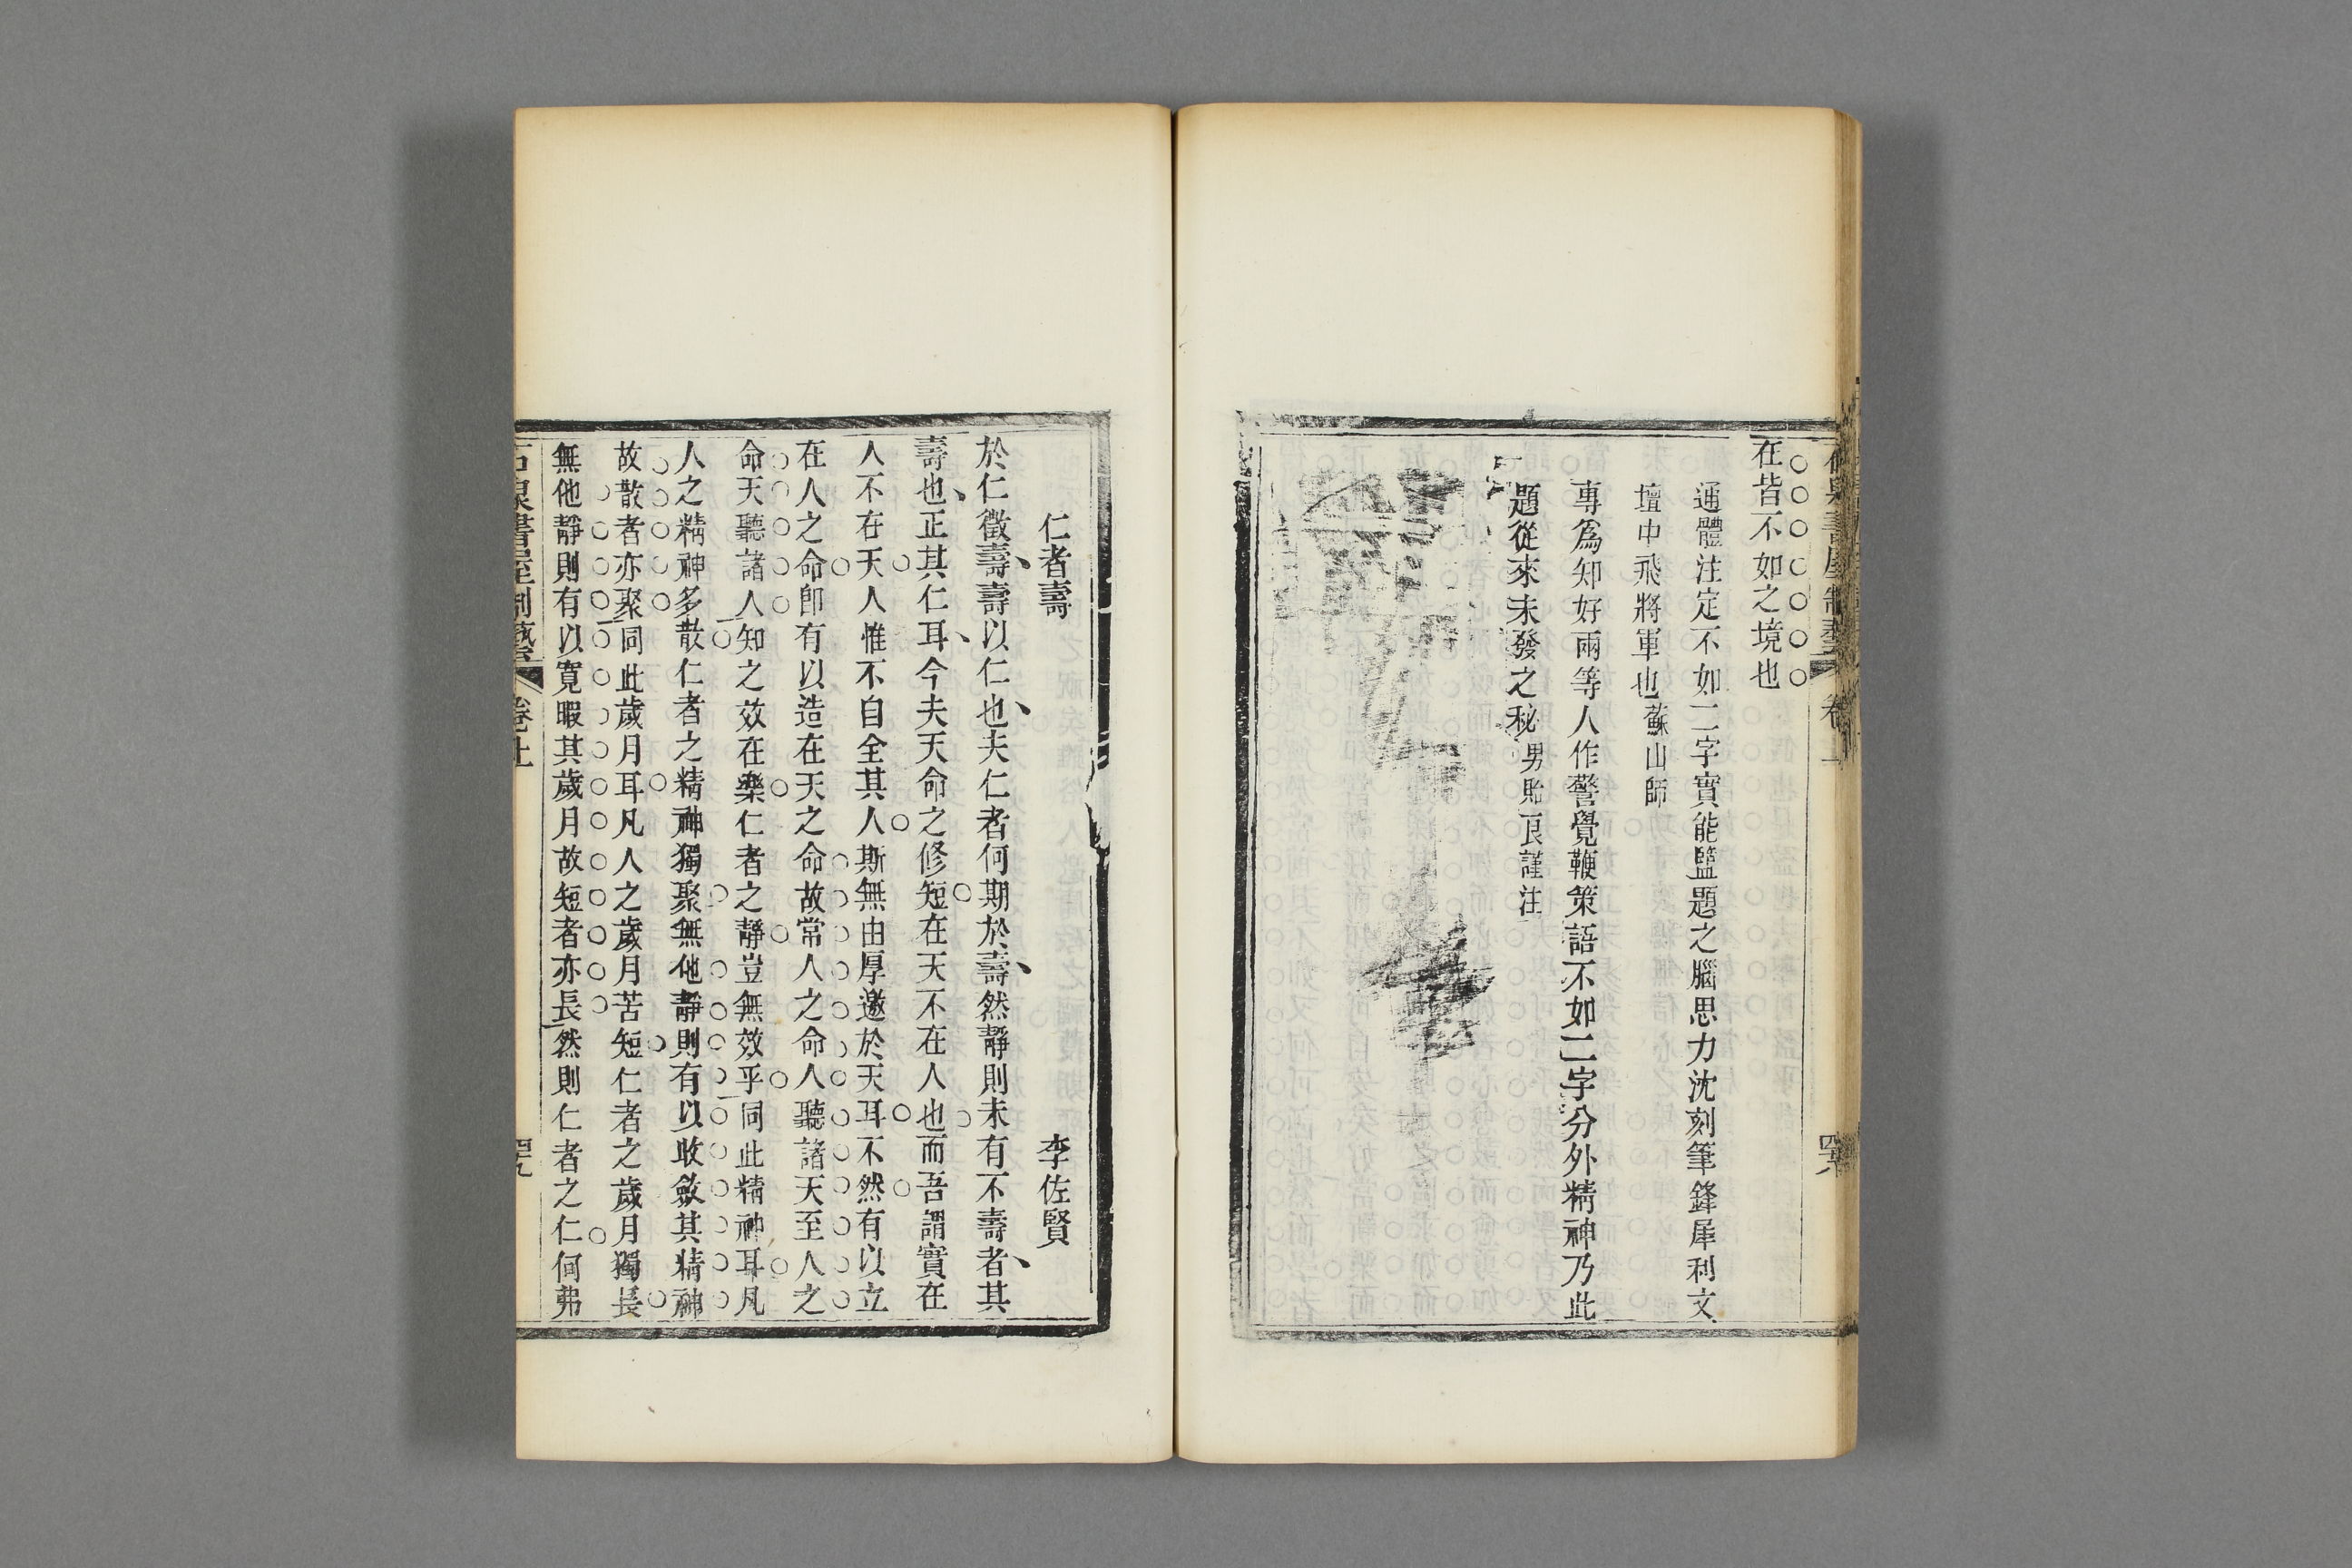 在皆不如之境也
通體注定不如二字實能盬題之腦思力沈刻筆鋒犀利文
壇中飛將軍也蘇山師
專爲知好兩等人作警覺鞭策語不如二字分外精神乃此
題從來未發之秘男貽良謹注
卷上
四十八
仁者壽
李佐賢
於仁徵壽壽以仁也夫仁者何期於壽然靜則未有不壽者其
壽也正其仁耳今夫天命之修短在天不在人也而吾謂實在
人不在天人惟不自全其人斯無由厚邀於天耳不然有以立
在人之命卽有以造在天之命故常人之命人聽諸天至人之
命天聽諸人知之效在樂仁者之靜豈無效乎同此精神耳凡
人之精神多散仁者之精神獨聚無他靜則有以收斂其精神
故散者亦聚同此歲月耳凡人之歲月苦短仁者之歲月獨長
無他靜則有以寬暇其歲月故短者亦長然則仁者之仁何弗
石泉書屋制藝
卷上
四十九